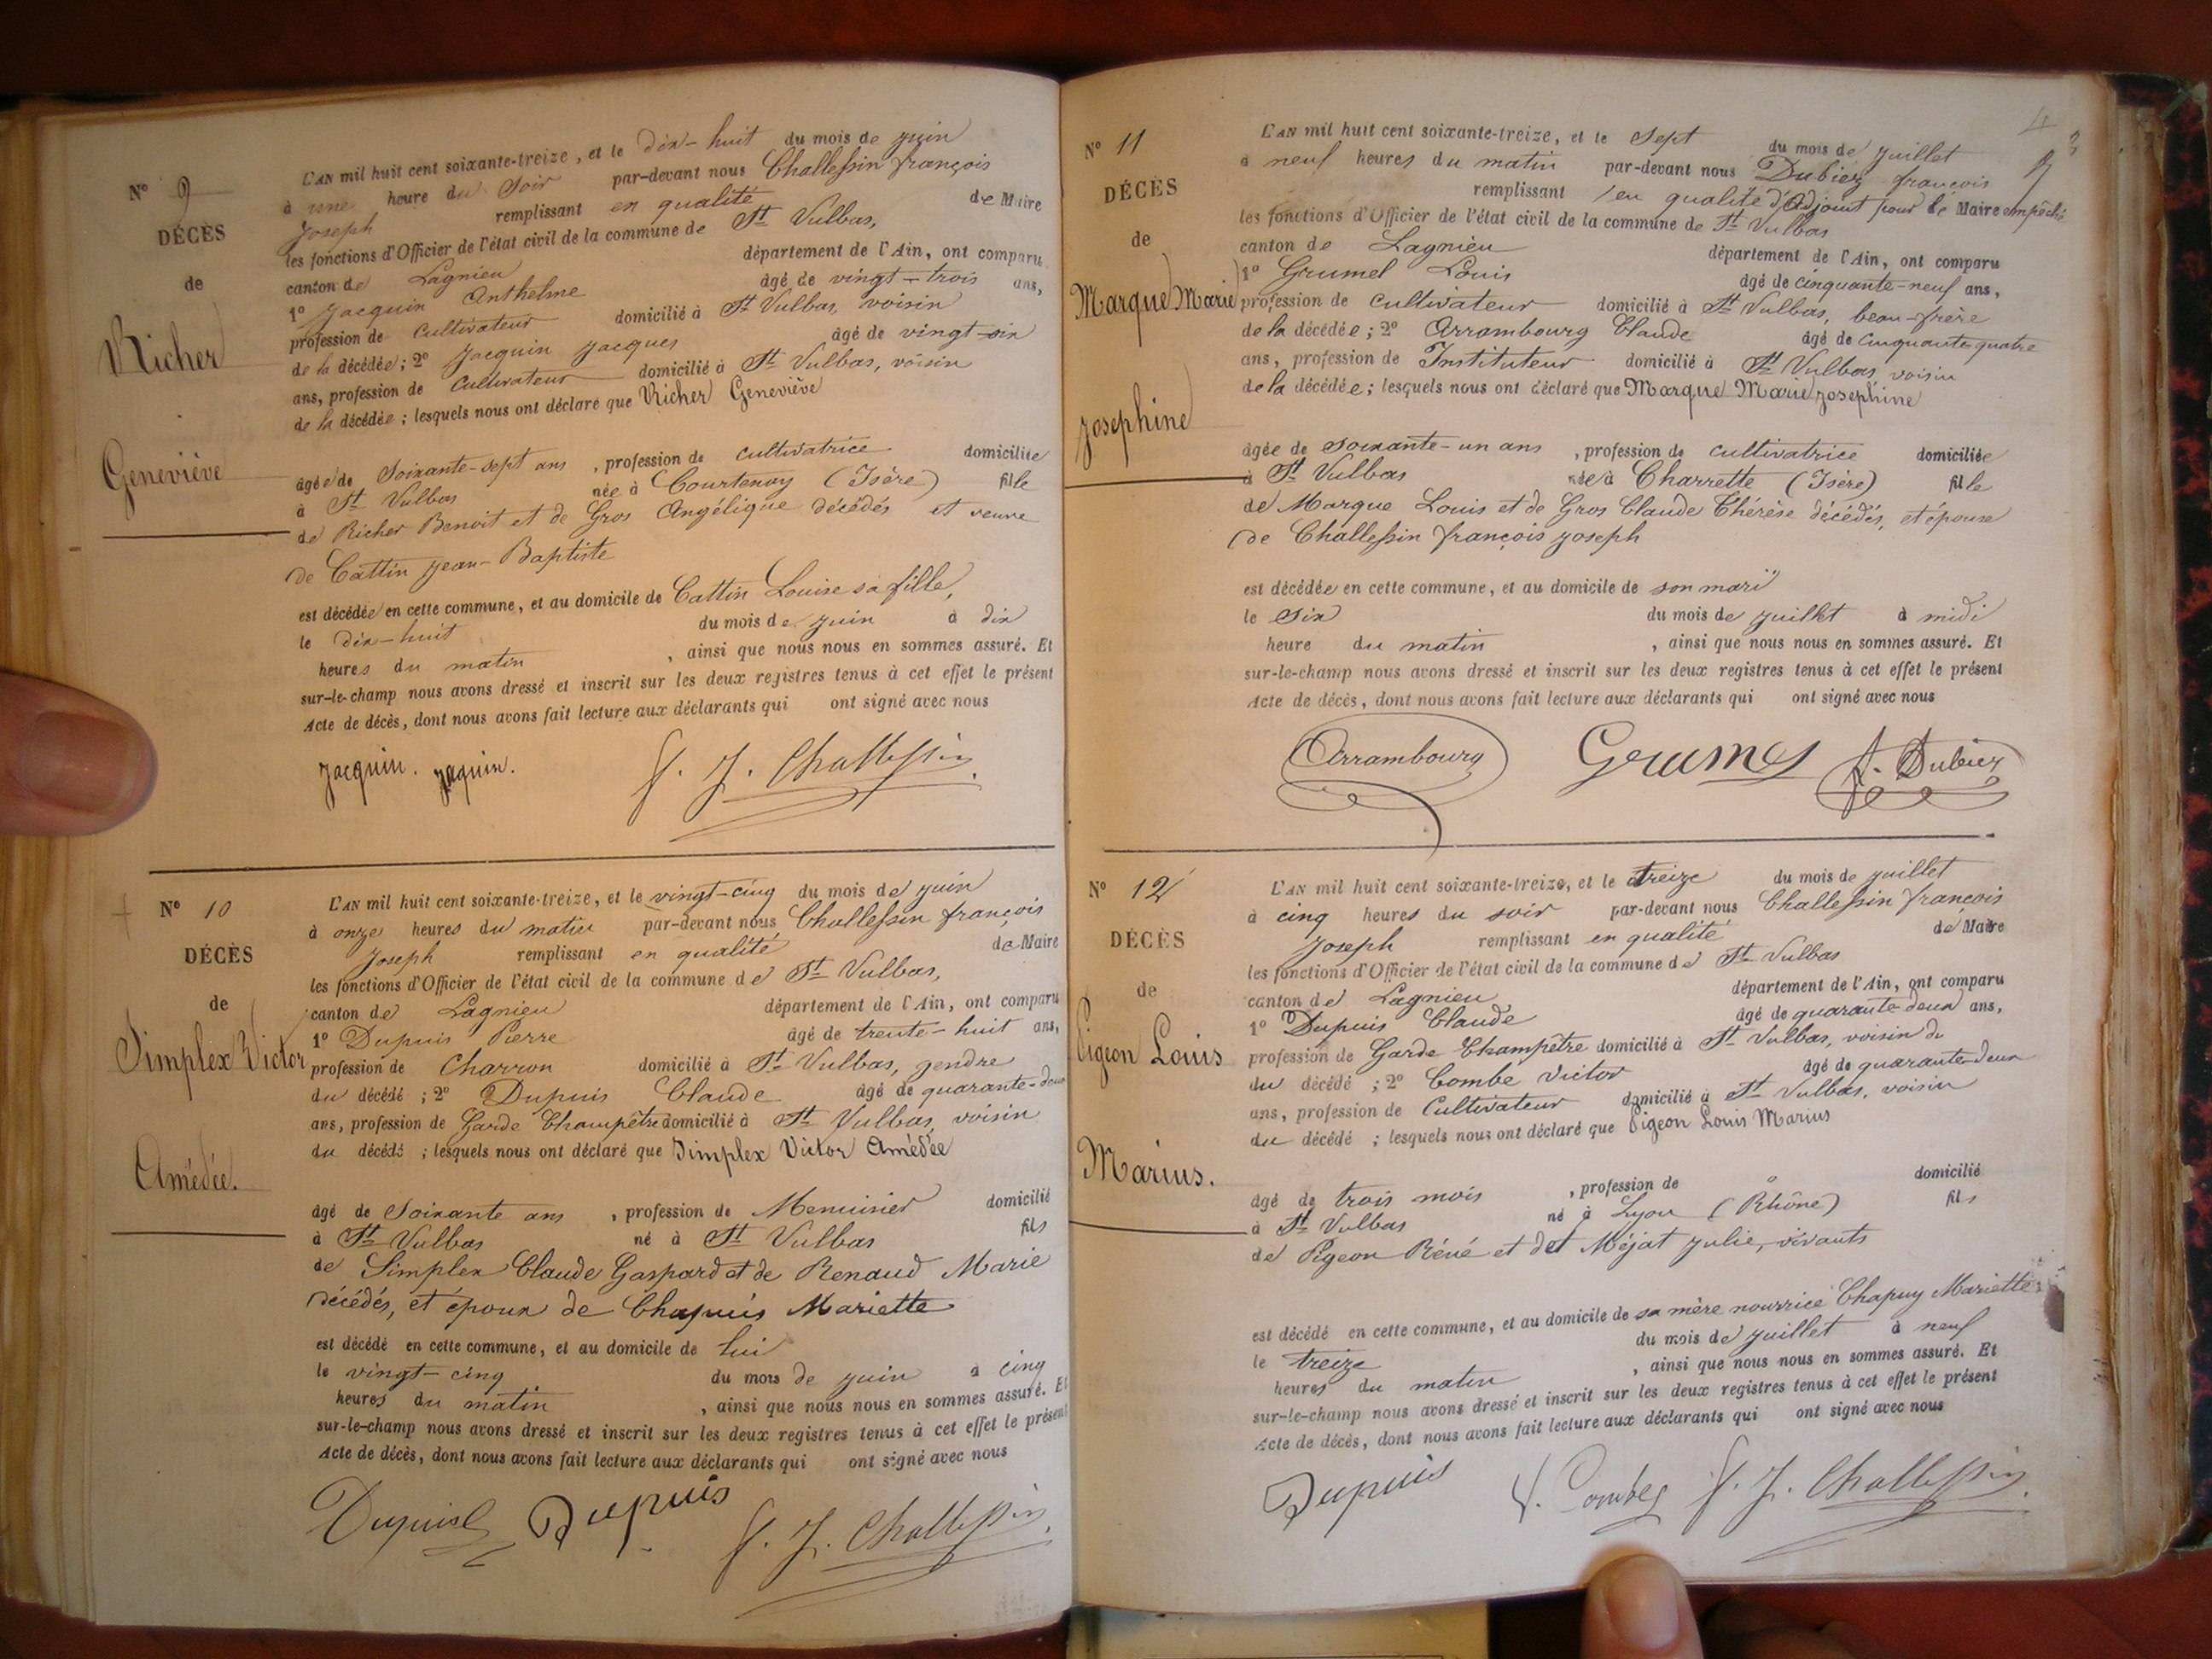 N° 9
DÉCÈS
de
Richer
Geneviève
L'AN mil huit cent soixante-treize, et le dix-huit du mois de juin
à une heure du Soir par-devant nous Challessin françois
Joseph remplissant en qualité de Maire
les fonctions d'Officier de l'état civil de la commune de St Vulbas,
canton de Lagnieu département de l'Ain, ont comparu
1° Jacquin Anthelme âgé de vingt-trois ans,
profession de Cultivateur domicilié à St Vulbas, voisin
de la décédée; 2° Jacquin Jacques âgé de vingt-six
ans, profession de Cultivateur domicilié à St Vulbas, voisin
de la décédée; lesquels nous ont déclaré que Richer Geneviève
âgée de Soixante-sept ans, profession de cultivatrice domiciliée
à St Vulbas née à Courtenay (Isère) fille
de Richer Benoit et de Gros Angélique décédés et veuve
de Cattin Jean-Baptiste
est décédée en cette commune, et au domicile de Cattin Louise sa fille,
le dix-huit du mois de juin à dix
heures du matin, ainsi que nous nous en sommes assuré. Et
sur-le-champ nous avons dressé et inscrit sur les deux registres tenus à cet effet le présent
Acte de décès, dont nous avons fait lecture aux déclarants qui ont signé avec nous
Jacquin. Jaquin. f. J. Challessin
N° 10
DÉCÈS
de
Simplex Victor
Amédée.
L'AN mil huit cent soixante-treize, et le vingt-cinq du mois de juin
à onze heures du matin par-devant nous Challessin françois
Joseph remplissant en qualité de Maire
les fonctions d'Officier de l'état civil de la commune de St Vulbas,
canton de Lagnieu département de l'Ain, ont comparu
1° Dupuis Pierre âgé de trente-huit ans,
profession de Charron domicilié à St Vulbas, gendre
du décédé; 2° Dupuis Claude âgé de quarante-deux
ans, profession de Garde Champêtre domicilié à St Vulbas, voisin
du décédé; lesquels nous ont déclaré que Simplex Victor Amédée
âgé de Soixante ans, profession de Menuisier domicilié
à St Vulbas né à St Vulbas fils
de Simplex Claude Gaspard et de Renaud Marie
décédés, et époux de Chapuis Mariette
est décédé en cette commune, et au domicile de lui
le vingt-cinq du mois de juin à cinq
heures du matin, ainsi que nous nous en sommes assuré. Et
sur-le-champ nous avons dressé et inscrit sur les deux registres tenus à cet effet le présent
Acte de décès, dont nous avons fait lecture aux déclarants qui ont signé avec nous
Dupuis Dupuis f. J. Challessin
4
N° 11
DÉCÈS
de
Marque Marie
Josephine
L'AN mil huit cent soixante-treize, et le Sept du mois de juillet
à neuf heures du matin par-devant nous Dubiez françois
remplissant en qualité d'Adjoint pour le Maire empêché
les fonctions d'Officier de l'état civil de la commune de St Vulbas
canton de Lagnieu département de l'Ain, ont comparu
1° Grumel Louis âgé de cinquante-neuf ans,
profession de Cultivateur domicilié à St Vulbas, beau-frère
de la décédée; 2° Arrambourg Claude âgé de cinquante-quatre
ans, profession de Instituteur domicilié à St Vulbas, voisin
de la décédée; lesquels nous ont déclaré que Marque Marie Josephine
âgée de soixante-un ans, profession de cultivatrice domiciliée
à St Vulbas née à Charrette (Isère) fille
de Marque Louis et de Gros Claude Thérèse décédés, et épouse
de Challessin françois Joseph
est décédée en cette commune, et au domicile de son mari
le Six du mois de juillet à midi
heure du matin, ainsi que nous nous en sommes assuré. Et
sur-le-champ nous avons dressé et inscrit sur les deux registres tenus à cet effet le présent
Acte de décès, dont nous avons fait lecture aux déclarants qui ont signé avec nous
Arrambourg Grumel f. Dubiez
N° 12
DÉCÈS
de
Pigeon Louis
Marius.
L'AN mil huit cent soixante-treize, et le treize du mois de juillet
à cinq heures du soir par-devant nous Challessin françois
Joseph remplissant en qualité de Maire
les fonctions d'Officier de l'état civil de la commune de St Vulbas
canton de Lagnieu département de l'Ain, ont comparu
1° Dupuis Claude âgé de quarante-deux ans,
profession de Garde Champêtre domicilié à St Vulbas, voisin de
du décédé; 2° Combe Victor âgé de quarante-deux
ans, profession de Cultivateur domicilié à St Vulbas, voisin
du décédé; lesquels nous ont déclaré que Pigeon Louis Marius
âgé de trois mois, profession de domicilié
à St Vulbas né à Lyon (Rhône) fils
de Pigeon Réné et de Méjat Julie, vivants
est décédé en cette commune, et au domicile de sa mère nourrice Chapuy Mariette
le treize du mois de juillet à neuf
heures du matin, ainsi que nous nous en sommes assuré. Et
sur-le-champ nous avons dressé et inscrit sur les deux registres tenus à cet effet le présent
Acte de décès, dont nous avons fait lecture aux déclarants qui ont signé avec nous
Dupuis V. Combes f. J. Challessin